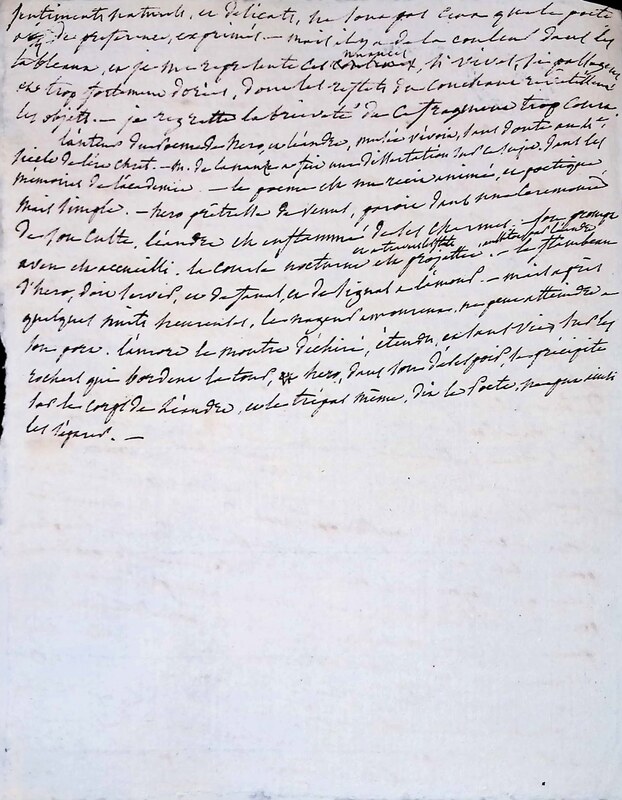 sentiments naturels, et délicats, ne sont pas ceux que le poète
ay de préférence, exprimés. – mais il y a de la couleur dans les
tableaux, et je me représente ces nuances, si vives, si
trop fortement dorées, dont les reflets du couchant
les objets. – je regrette la brièveté de ce fragment trop court.
l'auteur du Poème de hero, et léandre, musée vivoit, sans doute au
siècle de l'ère chret. – M. de la nauze a fait une dissertation sur ce sujet, dans les
mémoires de l'académie. – le poème est un récit animé, et poétique
mais simple. – hero prêtresse de venus, paroit dans une cérémonie
de son culte, léandre est enflammé de ses charmes. – son
aveu est accueilli. la course nocturne est projettée. – le flambeau
d'hero, doit servir, et de fanal, et de signal à l'amour. – mais après
quelques nuits heureuses, le nageur amoureux, ne peut atteindre
son port. l'aurore le montre déchiré, étendu, et sans vie sur les
rochers qui bordent la tour, hero, dans son désespoir, se précipite
sur le corps de Léandre, et le trépas même, dit le Poete, n'a pu
les séparer. –